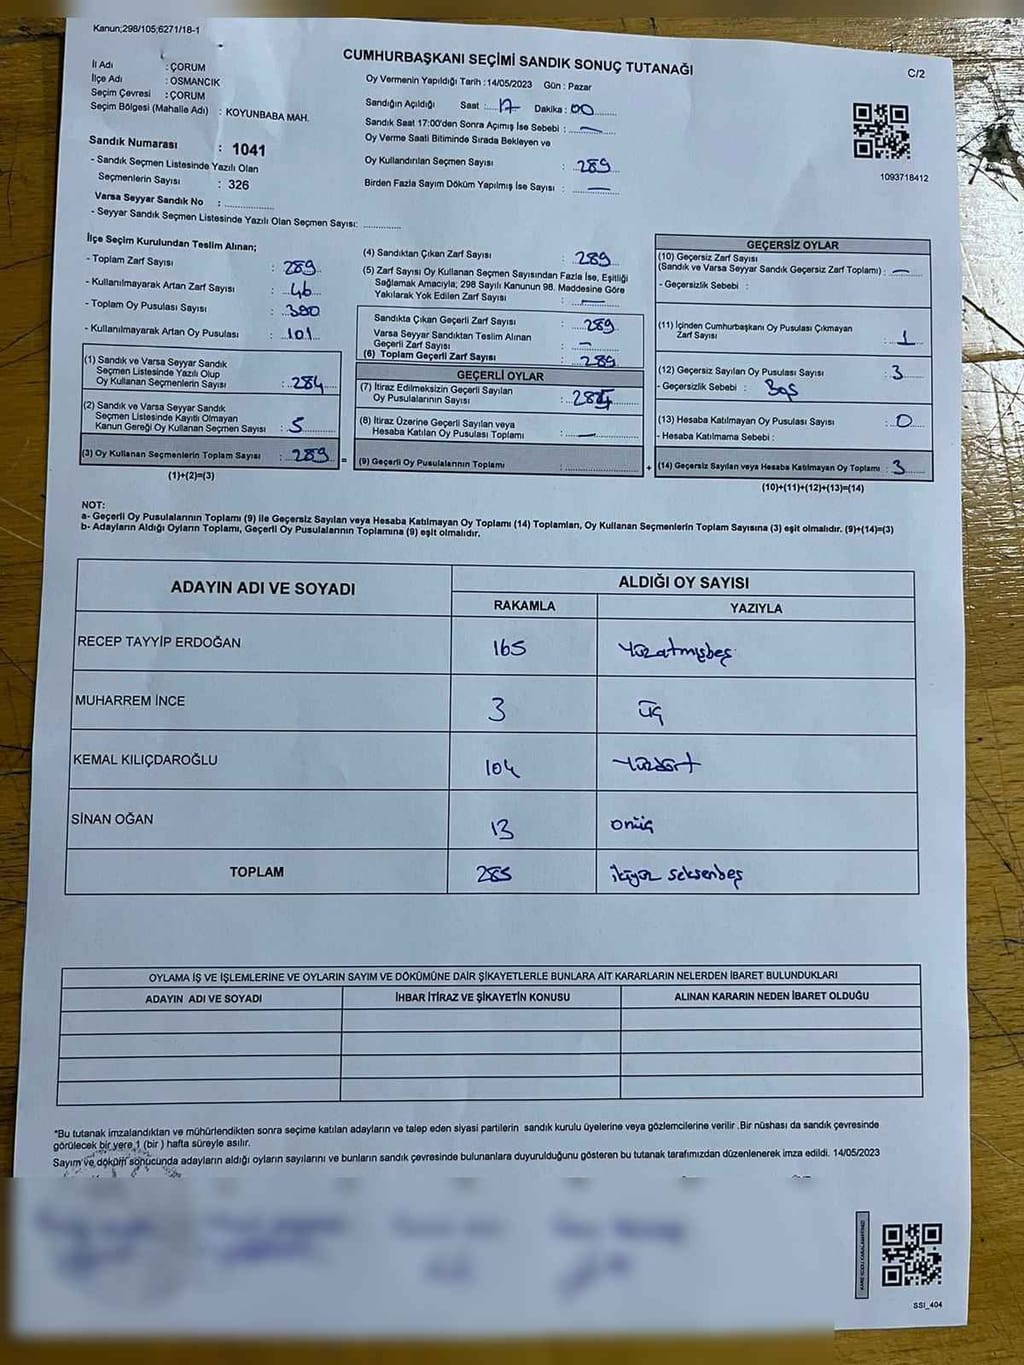 Kanun;298/105;6271/18-1
CUMHURBAŞKANI SEÇİMİ SANDIK SONUÇ TUTANAĞI
C/2
İl Adı : ÇORUM
İlçe Adı : OSMANCIK
Seçim Çevresi : ÇORUM
Seçim Bölgesi (Mahalle Adı) : KOYUNBABA MAH.
Sandık Numarası : 1041
- Sandık Seçmen Listesinde Yazılı Olan
Seçmenlerin Sayısı : 326
Varsa Seyyar Sandık No : ............
- Seyyar Sandık Seçmen Listesinde Yazılı Olan Seçmen Sayısı: ............
Oy Vermenin Yapıldığı Tarih : 14/05/2023 Gün : Pazar
Sandığın Açıldığı Saat : 17 Dakika : 00
Sandık Saat 17:00'den Sonra Açımış İse Sebebi : —
Oy Verme Saati Bitiminde Sırada Bekleyen ve
Oy Kullandırılan Seçmen Sayısı : 289
Birden Fazla Sayım Döküm Yapılmış İse Sayısı : —
1093718412
İlçe Seçim Kurulundan Teslim Alınan;
- Toplam Zarf Sayısı : 289
- Kullanılmayarak Artan Zarf Sayısı : 46
- Toplam Oy Pusulası Sayısı : 390
- Kullanılmayarak Artan Oy Pusulası : 101
(1) Sandık ve Varsa Seyyar Sandık
Seçmen Listesinde Yazılı Olup
Oy Kullanan Seçmenlerin Sayısı : 284
(2) Sandık ve Varsa Seyyar Sandık
Seçmen Listesinde Kayıtlı Olmayan
Kanun Gereği Oy Kullanan Seçmen Sayısı : 5
(3) Oy Kullanan Seçmenlerin Toplam Sayısı : 289
(1)+(2)=(3)
(4) Sandıktan Çıkan Zarf Sayısı : 289
(5) Zarf Sayısı Oy Kullanan Seçmen Sayısından Fazla İse, Eşitliği
Sağlamak Amacıyla; 298 Sayılı Kanunun 98. Maddesine Göre
Yakılarak Yok Edilen Zarf Sayısı : —
Sandıkta Çıkan Geçerli Zarf Sayısı : 289
Varsa Seyyar Sandıktan Teslim Alınan
Geçerli Zarf Sayısı : —
(6) Toplam Geçerli Zarf Sayısı : 289
GEÇERLİ OYLAR
(7) İtiraz Edilmeksizin Geçerli Sayılan
Oy Pusulalarının Sayısı :
(8) İtiraz Üzerine Geçerli Sayılan veya
Hesaba Katılan Oy Pusulası Toplamı : —
= (9) Geçerli Oy Pusulalarının Toplamı : ............ +
GEÇERSİZ OYLAR
(10) Geçersiz Zarf Sayısı
(Sandık ve Varsa Seyyar Sandık Geçersiz Zarf Toplamı) : —
- Geçersizlik Sebebi :
(11) İçinden Cumhurbaşkanı Oy Pusulası Çıkmayan
Zarf Sayısı : 1
(12) Geçersiz Sayılan Oy Pusulası Sayısı : 3
- Geçersizlik Sebebi : Boş
(13) Hesaba Katılmayan Oy Pusulası Sayısı : 0
- Hesaba Katılmama Sebebi :
(14) Geçersiz Sayılan veya Hesaba Katılmayan Oy Toplamı : 3
(10)+(11)+(12)+(13)=(14)
NOT:
a- Geçerli Oy Pusulalarının Toplamı (9) ile Geçersiz Sayılan veya Hesaba Katılmayan Oy Toplamı (14) Toplamları, Oy Kullanan Seçmenlerin Toplam Sayısına (3) eşit olmalıdır. (9)+(14)=(3)
b- Adayların Aldığı Oyların Toplamı, Geçerli Oy Pusulalarının Toplamına (9) eşit olmalıdır.
ADAYIN ADI VE SOYADI
ALDIĞI OY SAYISI
RAKAMLA YAZIYLA
RECEP TAYYİP ERDOĞAN 165 Yüzatmışbeş
MUHARREM İNCE 3 üç
KEMAL KILIÇDAROĞLU 104 Yüzdört
SİNAN OĞAN 13 onüç
TOPLAM 285 ikiyüz seksenbeş
OYLAMA İŞ VE İŞLEMLERİNE VE OYLARIN SAYIM VE DÖKÜMÜNE DAİR ŞİKAYETLERLE BUNLARA AİT KARARLARIN NELERDEN İBARET BULUNDUKLARI
ADAYIN ADI VE SOYADI İHBAR İTİRAZ VE ŞİKAYETİN KONUSU ALINAN KARARIN NEDEN İBARET OLDUĞU
*Bu tutanak imzalandıktan ve mühürlendikten sonra seçime katılan adayların ve talep eden siyasi partilerin sandık kurulu üyelerine veya gözlemcilerine verilir .Bir nüshası da sandık çevresinde
görülecek bir yere 1 (bir ) hafta süreyle asılır.
Sayım ve döküm sonucunda adayların aldığı oyların sayılarını ve bunların sandık çevresinde bulunanlara duyurulduğunu gösteren bu tutanak tarafımızdan düzenlenerek imza edildi. 14/05/2023
SSI_404